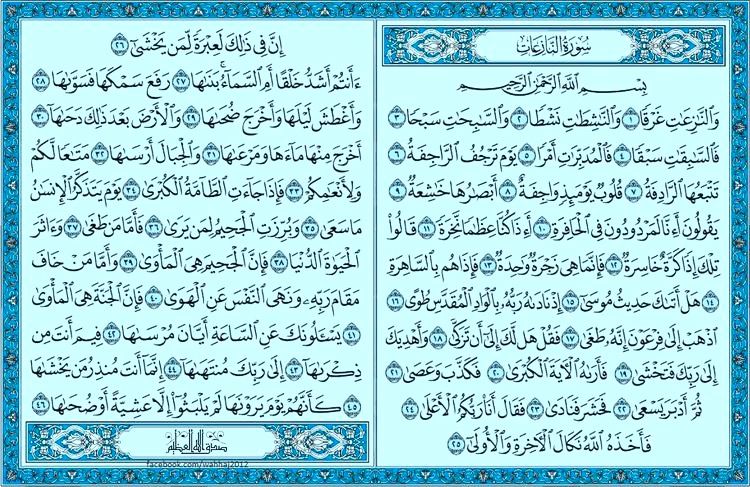 سُورَةُ النَّازِعَاتِ
بِسْمِ اللَّهِ الرَّحْمَٰنِ الرَّحِيمِ
وَٱلنَّٰزِعَٰتِ غَرْقًا ١ وَٱلنَّٰشِطَٰتِ نَشْطًا ٢ وَٱلسَّٰبِحَٰتِ سَبْحًا ٣
فَٱلسَّٰبِقَٰتِ سَبْقًا ٤ فَٱلْمُدَبِّرَٰتِ أَمْرًا ٥ يَوْمَ تَرْجُفُ ٱلرَّاجِفَةُ ٦
تَتْبَعُهَا ٱلرَّادِفَةُ ٧ قُلُوبٌ يَوْمَئِذٍ وَاجِفَةٌ ٨ أَبْصَٰرُهَا خَٰشِعَةٌ ٩
يَقُولُونَ أَءِنَّا لَمَرْدُودُونَ فِى ٱلْحَافِرَةِ ١٠ أَءِذَا كُنَّا عِظَٰمًا نَّخِرَةً ١١ قَالُوا۟
تِلْكَ إِذًا كَرَّةٌ خَاسِرَةٌ ١٢ فَإِنَّمَا هِىَ زَجْرَةٌ وَٰحِدَةٌ ١٣ فَإِذَا هُم بِٱلسَّاهِرَةِ
١٤ هَلْ أَتَىٰكَ حَدِيثُ مُوسَىٰٓ ١٥ إِذْ نَادَىٰهُ رَبُّهُۥ بِٱلْوَادِ ٱلْمُقَدَّسِ طُوًى ١٦
ٱذْهَبْ إِلَىٰ فِرْعَوْنَ إِنَّهُۥ طَغَىٰ ١٧ فَقُلْ هَل لَّكَ إِلَىٰٓ أَن تَزَكَّىٰ ١٨ وَأَهْدِيَكَ
إِلَىٰ رَبِّكَ فَتَخْشَىٰ ١٩ فَأَرَىٰهُ ٱلْءَايَةَ ٱلْكُبْرَىٰ ٢٠ فَكَذَّبَ وَعَصَىٰ ٢١
ثُمَّ أَدْبَرَ يَسْعَىٰ ٢٢ فَحَشَرَ فَنَادَىٰ ٢٣ فَقَالَ أَنَا۠ رَبُّكُمُ ٱلْأَعْلَىٰ ٢٤
فَأَخَذَهُ ٱللَّهُ نَكَالَ ٱلْءَاخِرَةِ وَٱلْأُولَىٰٓ ٢٥
إِنَّ فِى ذَٰلِكَ لَعِبْرَةً لِّمَن يَخْشَىٰٓ ٢٦
ءَأَنتُمْ أَشَدُّ خَلْقًا أَمِ ٱلسَّمَآءُ ۚ بَنَىٰهَا ٢٧ رَفَعَ سَمْكَهَا فَسَوَّىٰهَا ٢٨
وَأَغْطَشَ لَيْلَهَا وَأَخْرَجَ ضُحَىٰهَا ٢٩ وَٱلْأَرْضَ بَعْدَ ذَٰلِكَ دَحَىٰهَآ ٣٠
أَخْرَجَ مِنْهَا مَآءَهَا وَمَرْعَىٰهَا ٣١ وَٱلْجِبَالَ أَرْسَىٰهَا ٣٢ مَتَٰعًا لَّكُمْ
وَلِأَنْعَٰمِكُمْ ٣٣ فَإِذَا جَآءَتِ ٱلطَّآمَّةُ ٱلْكُبْرَىٰ ٣٤ يَوْمَ يَتَذَكَّرُ ٱلْإِنسَٰنُ
مَا سَعَىٰ ٣٥ وَبُرِّزَتِ ٱلْجَحِيمُ لِمَن يَرَىٰ ٣٦ فَأَمَّا مَن طَغَىٰ ٣٧ وَءَاثَرَ
ٱلْحَيَوٰةَ ٱلدُّنْيَا ٣٨ فَإِنَّ ٱلْجَحِيمَ هِىَ ٱلْمَأْوَىٰ ٣٩ وَأَمَّا مَنْ خَافَ
مَقَامَ رَبِّهِۦ وَنَهَى ٱلنَّفْسَ عَنِ ٱلْهَوَىٰ ٤٠ فَإِنَّ ٱلْجَنَّةَ هِىَ ٱلْمَأْوَىٰ
٤١ يَسْـَٔلُونَكَ عَنِ ٱلسَّاعَةِ أَيَّانَ مُرْسَىٰهَا ٤٢ فِيمَ أَنتَ مِن
ذِكْرَىٰهَآ ٤٣ إِلَىٰ رَبِّكَ مُنتَهَىٰهَآ ٤٤ إِنَّمَآ أَنتَ مُنذِرُ مَن يَخْشَىٰهَا
٤٥ كَأَنَّهُمْ يَوْمَ يَرَوْنَهَا لَمْ يَلْبَثُوٓا۟ إِلَّا عَشِيَّةً أَوْ ضُحَىٰهَا ٤٦
صدق الله العظيم
facebook.com/wahhaj2012